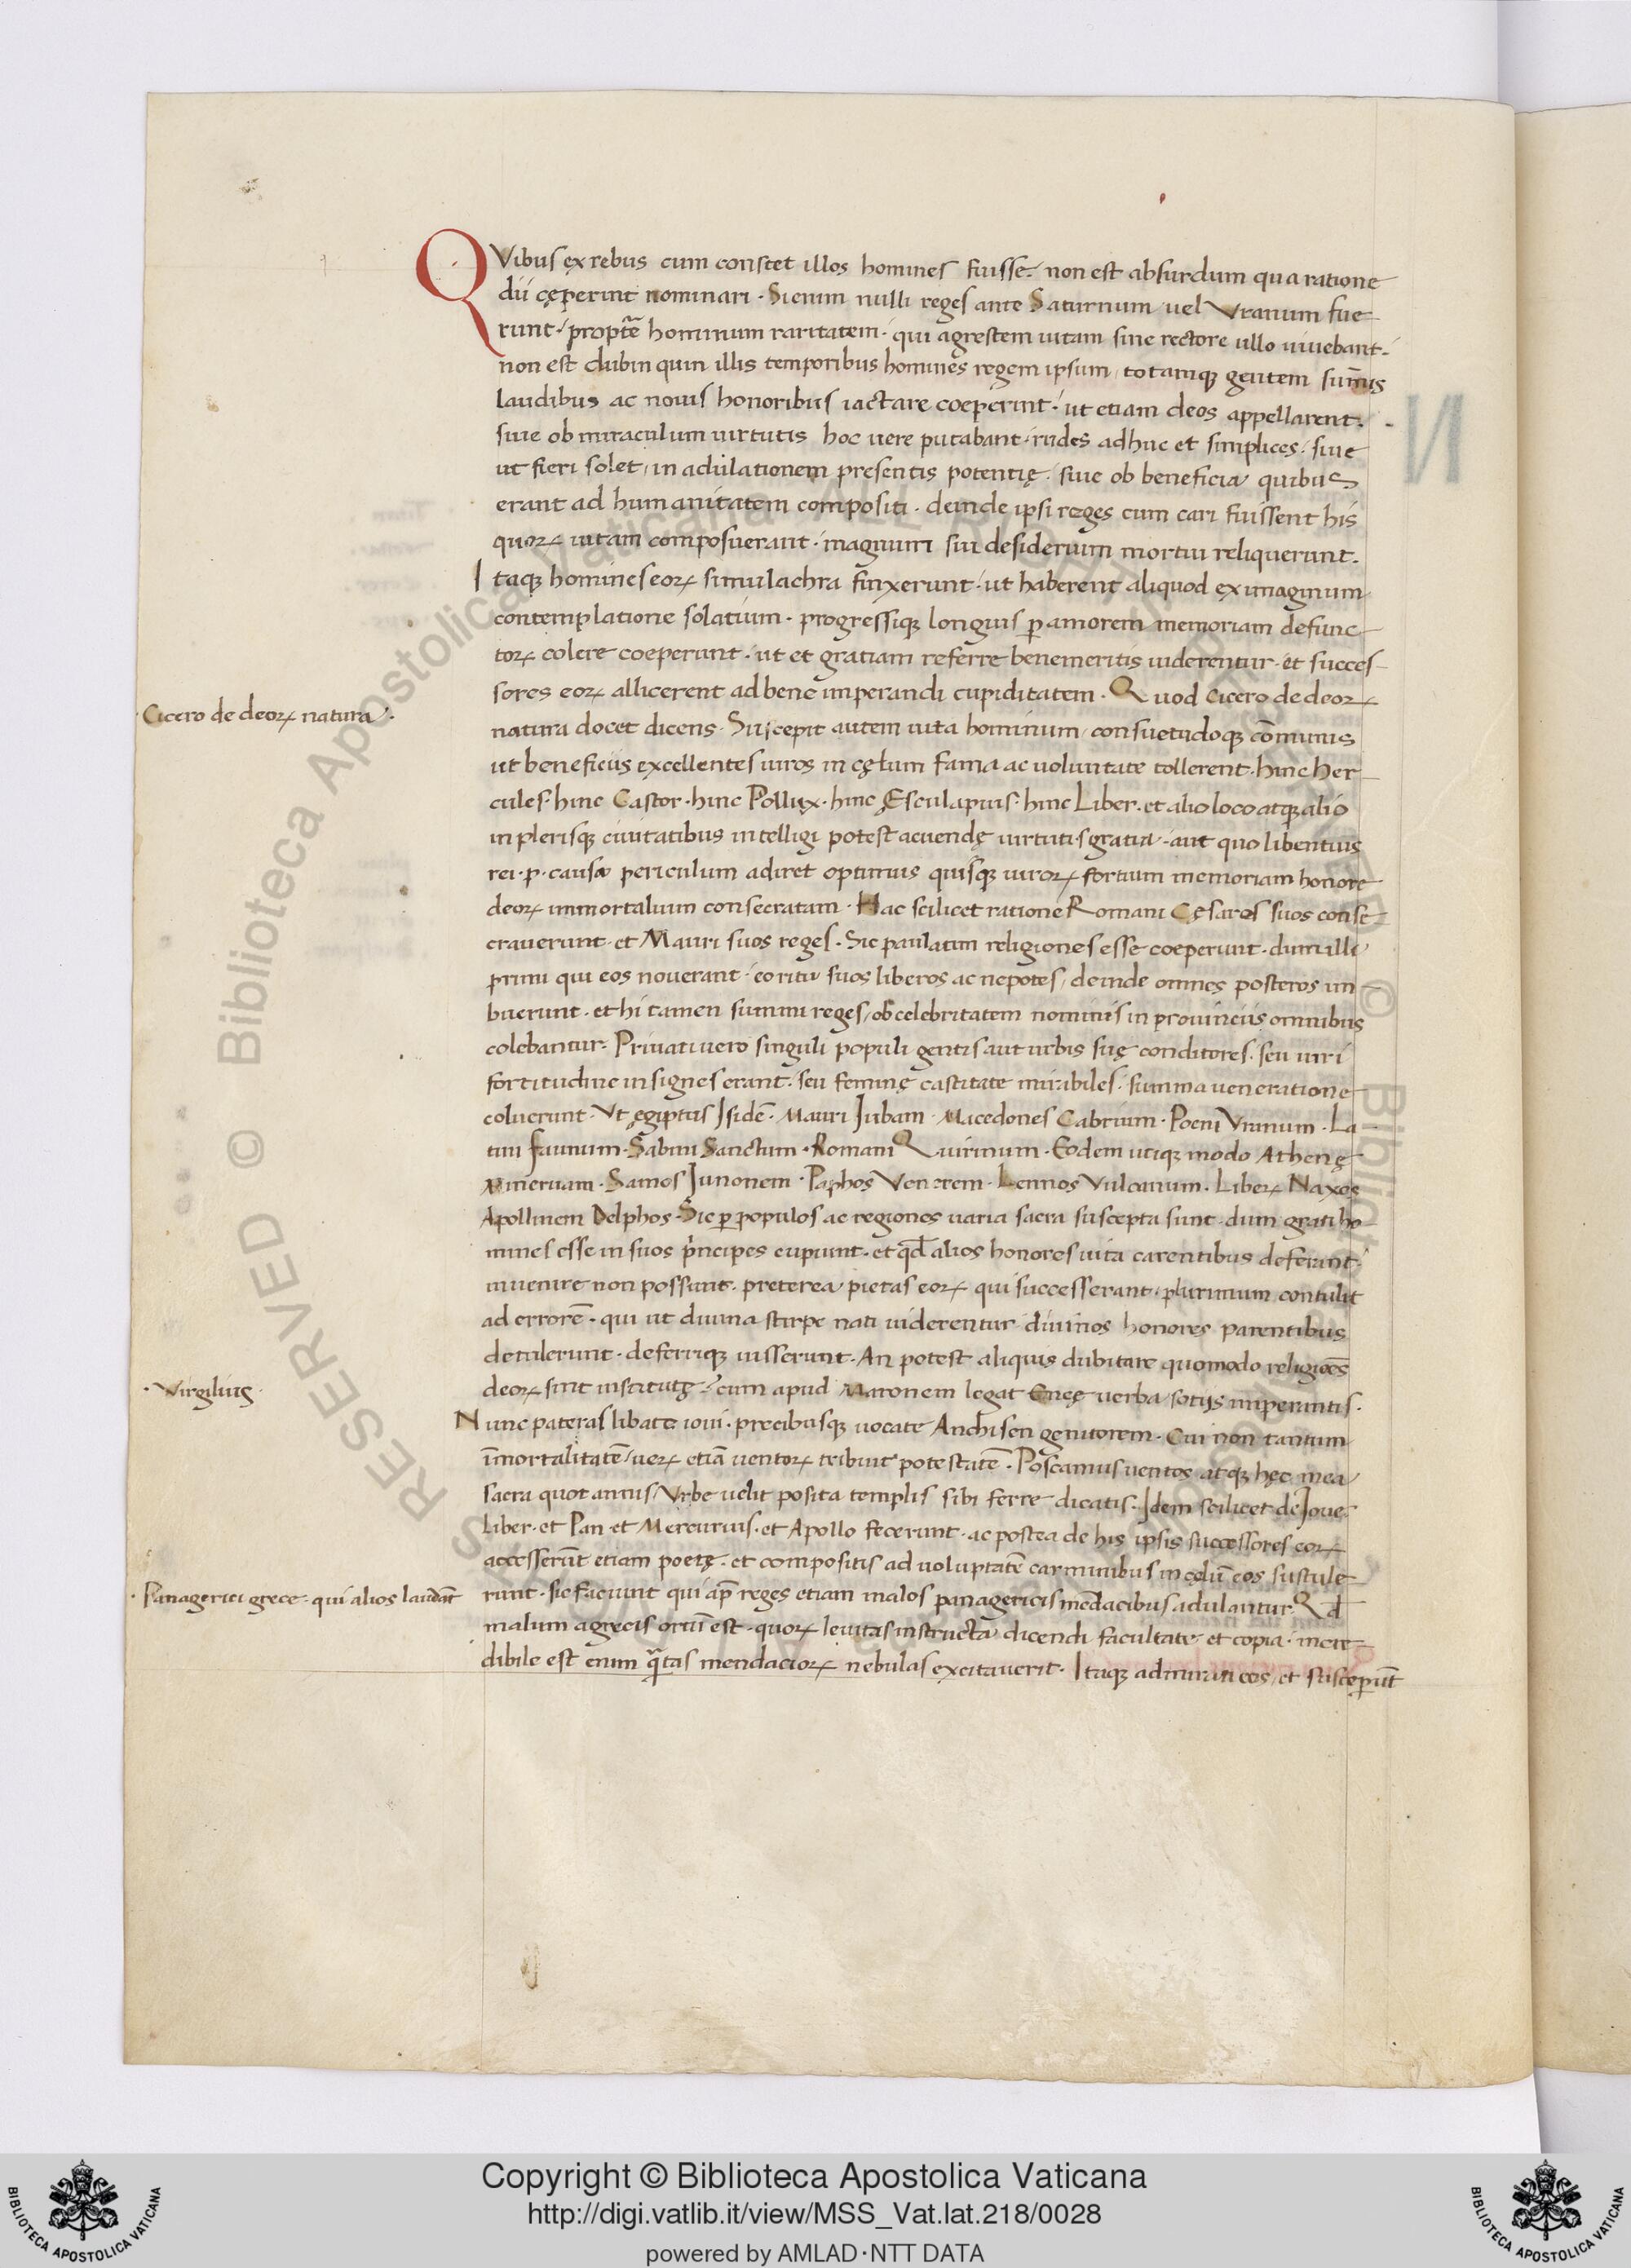 QVibus ex rebus cum constet illos homines fuisse. non est absurdum qua ratione
dii cęperint nominari. Si enim nulli reges ante Saturnum uel Vranum fue
runt. proptr̄ hominum raritatem. qui agrestem uitam sine rectore ullo uiuebant.
non est dubin quin illis temporibus homines regem ipsum, totamqꝫ gentem sum̄is
laudibus ac nouis honoribus iactare coeperint. ut etiam deos appellarent.
siue ob miraculum uirtutis hoc uere putabant. rudes adhuc et simplices. siue
ut fieri solet, in adulationem presentis potentię. siue ob beneficia quibus
erant ad humanitatem compositi. deinde ipsi reges cum cari fuissent his
quoꝝ uitam composuerant. magnum sui desiderium mortui reliquerunt.
Itaqꝫ homines eoꝝ simulachra finxerunt. ut haberent aliquod ex imaginum
contemplatione solatium. progressiqꝫ longius ꝑ amorem memoriam defunc
toꝝ colere coeperunt. ut et gratiam referre benemeritis uiderentur. et succes
sores eoꝝ allicerent ad bene imperandi cupiditatem. Quod Cicero de deoꝝ
natura docet dicens. Suscepit autem uita hominum, consuetudoqꝫ com̄unis
ut beneficiis excellentes uiros in cęlum fama ac uoluntate tollerent. hinc Her
cules. hinc Castor. hinc Pollux. hinc Ęsculapius. hinc Liber. et alio loco atqꝫ alio
in plerisqꝫ ciuitatibus intelligi potest acuendę uirtutis gratia. aut quo libentius
rei. p. causa periculum adiret optimus quisqꝫ uiroꝝ fortium memoriam honore
deoꝝ immortalium consecratam. Hac scilicet ratione Romani Cęsares suos conse
crauerunt. et Mauri suos reges. Sic paulatim religiones esse coeperunt. dum illi
primi qui eos nouerant. eo ritu suos liberos ac nepotes, deinde omnes posteros im
buerunt. et hi tamen summi reges, ob celebritatem nominis in prouinciis omnibus
colebantur. Priuati uero singuli populi gentis aut urbis suę conditores. seu uiri
fortitudine insignes erant. seu feminę castitate mirabiles. summa ueneratione
coluerunt. Vt ęgiptus Isidē. Mauri Iubam. Macedones Cabrium. Poeni Vranum. La
tini Faunum. Sabini Sanctum. Romani Quirinum. Eodem utiqꝫ modo Athenę
Mineruam. Samos Iunonem. Paphos Venerem. Lennos Vulcanum. Libeꝝ Naxos
Apollinem Delphos. Sic ꝑ populos ac regiones uaria sacra suscepta sunt. dum grati ho
mines esse in suos pͥncipes cupiunt. et qd̄ alios honores uita carentibus deferant
inuenire non possunt. preterea pietas eoꝝ qui successerant. plurimum contulit
ad errorē. qui ut diuina stirpe nati uiderentur diuinos honores parentibus
detulerunt. deferriqꝫ iusserunt. An potest aliquis dubitare quomodo religiōes
deoꝝ sint institutę? cum apud Maronem legat Enęę uerba sotiis imperantis.
Nunc pateras libate ioui. precibusqꝫ uocate Anchisen genitorem. Cui non tantum
īmortalitatē, ueꝝ etiā uentoꝝ tribuit potestatē. Poscamus uentos atqꝫ hęc mea
sacra quot annis, Vrbe uelit posita templis sibi ferre dicatis. Idem scilicet de Ioue
Liber. et Pan et Mercurius. et Apollo fecerunt. ac postea de his ipsis successores eoꝝ
accesserūt etiam poetę. et compositis ad uoluptatē carminibus in cęlū eos sustule
runt. sic faciunt qui ap̄ reges etiam malos panagericis mēdacibus adulantur. Qd̄
malum a grecis ortū est. quoꝝ leuitas instructa dicendi facultate et copia. incre
dibile est enim qͣtas mendacioꝝ nebulas excitauerit. Itaqꝫ admirati eos, et susceꝑūt
.Cicero de deoꝝ natura.
.Virgilius.
.Panagerici grece. qui alios laudāt
N
Copyright © Biblioteca Apostolica Vaticana
http://digi.vatlib.it/view/MSS_Vat.lat.218/0028
powered by AMLAD·NTT DATA
BIBLIOTECA APOSTOLICA VATICANA
BIBLIOTECA APOSTOLICA VATICANA